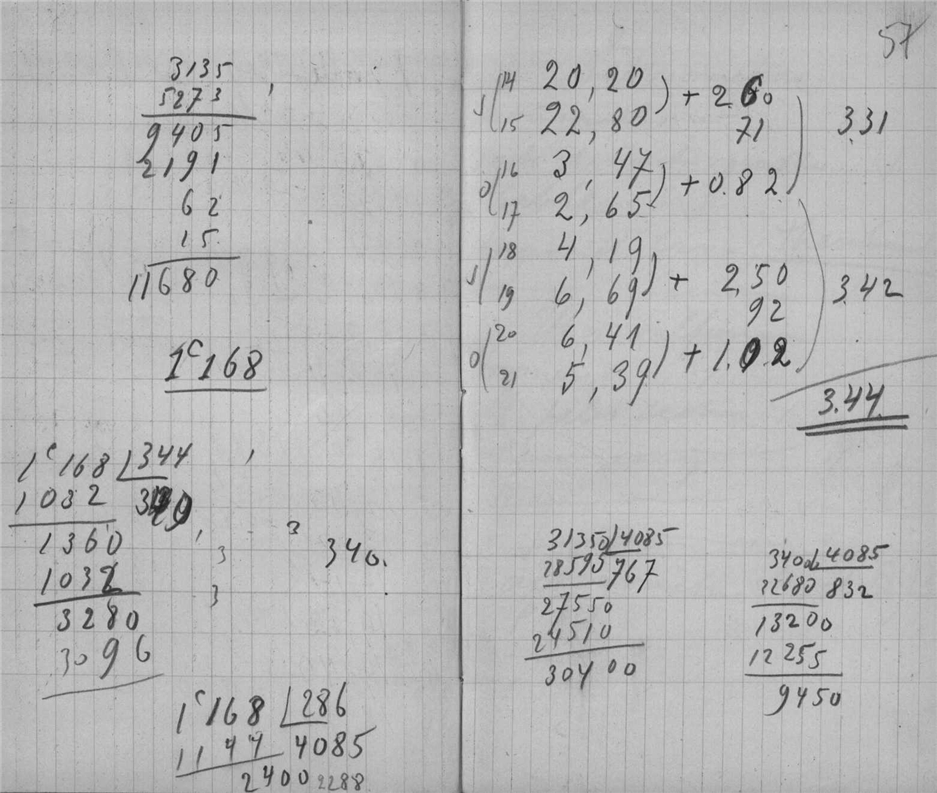 3135
5273
9405
2191
62
15
11680
1c168
1c168 344
1032
1360
1032
3280
3096
340.
1c168 286
1144 4085
2400 2288
57
14 20,20
+ 2.60
15 22,80
71
3.31
16 3,47
+ 0.82
0
17 2,65
18 4,19
+ 2,50
19 6,69
92
3.42
20 6,41
+ 1.02
0
21 5,39
3.44
31350 4085
28595 767
27550
24510
30400
3400 4085
32680 832
13200
12255
9450